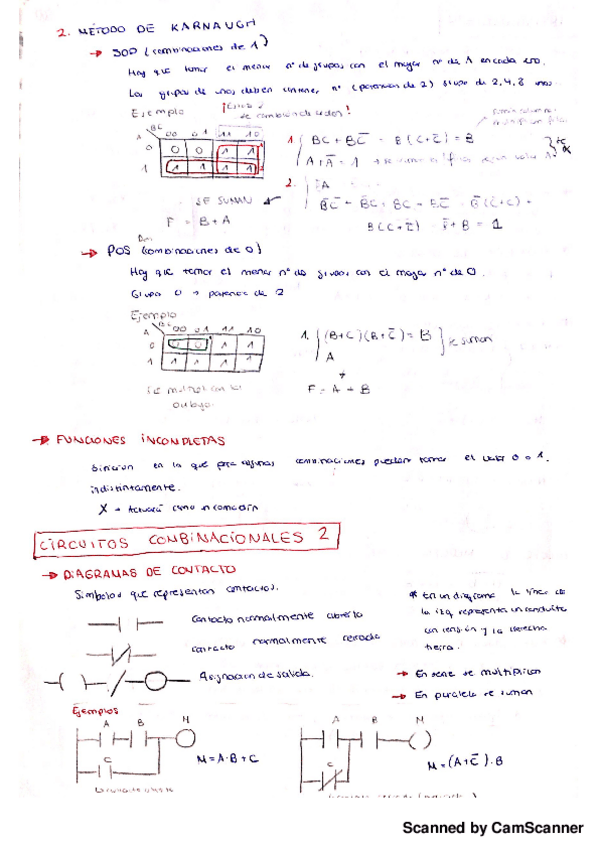 2. MÉTODO DE KARNAUGH
→ SOP (combinaciones de 1)
Hay que tomar el menor nº de grupos con el mayor nº de 1 en cada uno.
Los grupos de unos deben contener nº (potencias de 2) grupo de 2,4,8 unos
Ejemplo
se cambian de orden!
A BC 00 01 11 10
0 0 0 1 1
1 1 1 1 1
1. BC + BC̅ = B(C+C̅) = B
A+A̅ = 1
2. A
SE SUMAN
F = B + A
B(C+C̅) B̅+B = 1
→ POS (combinaciones de 0)
Hay que tomar el menor nº de grupos con el mayor nº de 0.
Grupo 0 → potencia de 2
Ejemplo
A BC 00 01 11 10
0 0 0 1 1
1 1 1 1 1
1. (B+C)(B+C̅) = B } se suman
A
F = A + B
Se multiplican los
→ FUNCIONES INCOMPLETAS
Función en la que para algunas combinaciones pueden tomar el valor 0 o 1.
indistintamente.
X → Actuará como incomodín
CIRCUITOS COMBINACIONALES 2
→ DIAGRAMAS DE CONTACTO
Símbolos que representan contactos.
Contacto normalmente abierto
contacto normalmente cerrado
Asignación de salida.
* En un diagrama la línea de
la izq representa un conducto
con tensión y la derecha
tierra.
→ En serie se multiplican
→ En paralelo se suman
Ejemplos
A B M
C
M = A·B + C
A B M
C
M = (A+C̅)·B
Scanned by CamScanner